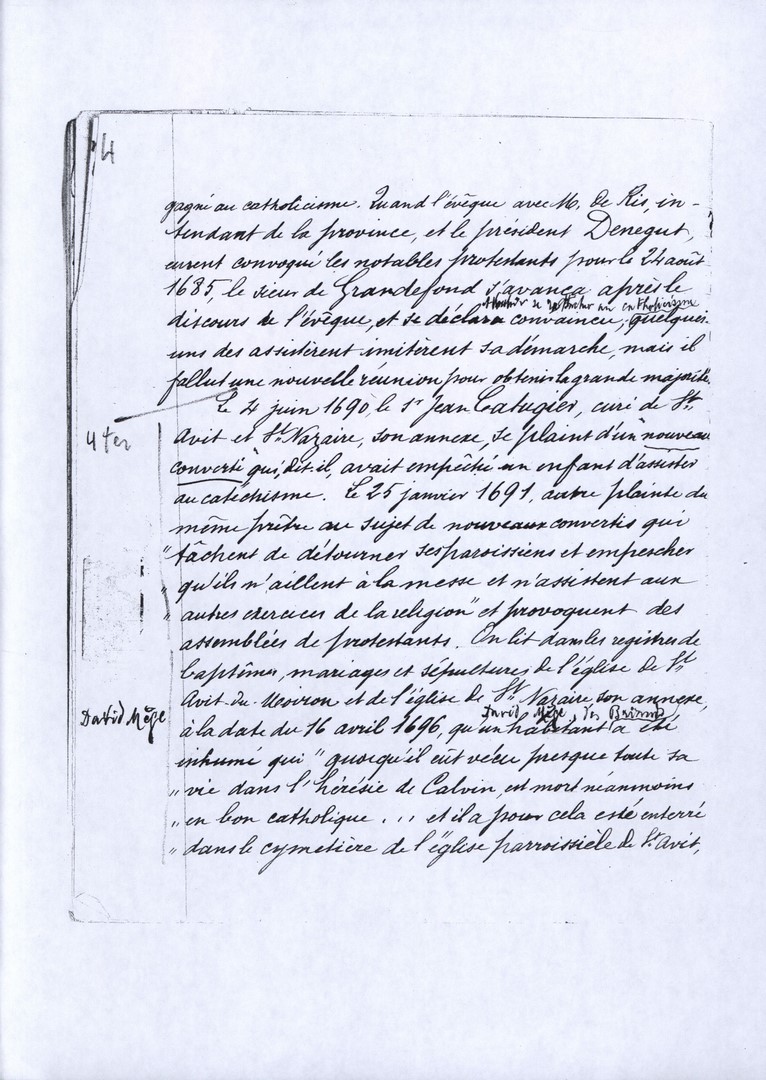 4
gagné au catholicisme. Quand l'évêque avec M. de Ris, in-
tendant de la province, et le président Denegut,
eurent convoqué les notables protestants pour le 24 août
1685, le sieur de Grandefond s'avança après le
au catholicisme
discours de l'évêque, et se déclara convaincu, quelques-
uns des assistèrent imitèrent sa démarche, mais il
fallut une nouvelle réunion pour obtenir la grande majorité.
Le 4 juin 1690, le Sr Jean Catugier, curé de St.
4 ter
Avit et St. Nazaire, son annexe, se plaint d'un "nouveau
converti" qui, dit-il, avait empêché un enfant d'assister
au catéchisme. Le 25 janvier 1691, autre plainte du
même prêtre au sujet de nouveaux convertis qui
"tâchent de détourner ses paroissiens et empescher
" qu'ils n'aillent à la messe et n'assistent aux
" autres exercices de la religion" et provoquent des
assemblées de protestants. On lit dans les registres de
baptêmes, mariages et sépultures de l'église de St
Avit-du-Moiron et de l'église de St Nazaire son annexe,
David Mège
David Mège, des Briands
à la date du 16 avril 1696, qu'un habitant a été
inhumé qui "quoiqu'il eût vécu presque toute sa
" vie dans l'hérésie de Calvin, est mort néanmoins
" en bon catholique ... et il a pour cela esté enterré
" dans le cymetière de l'église parroissièle de St. Avit,